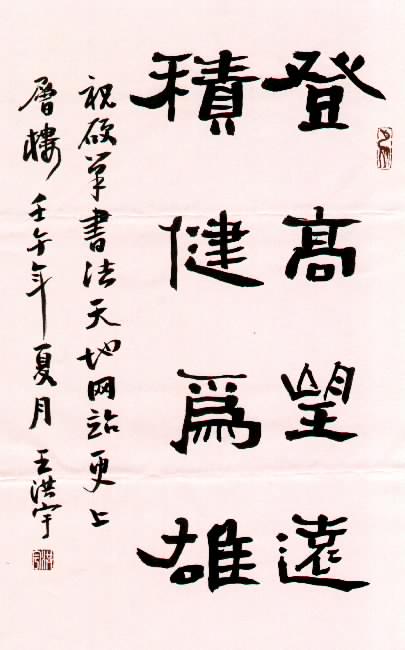 登高望遠
積健爲雄
祝硕笔書法天地网站更上
層楼 壬午年夏月 王洪宇